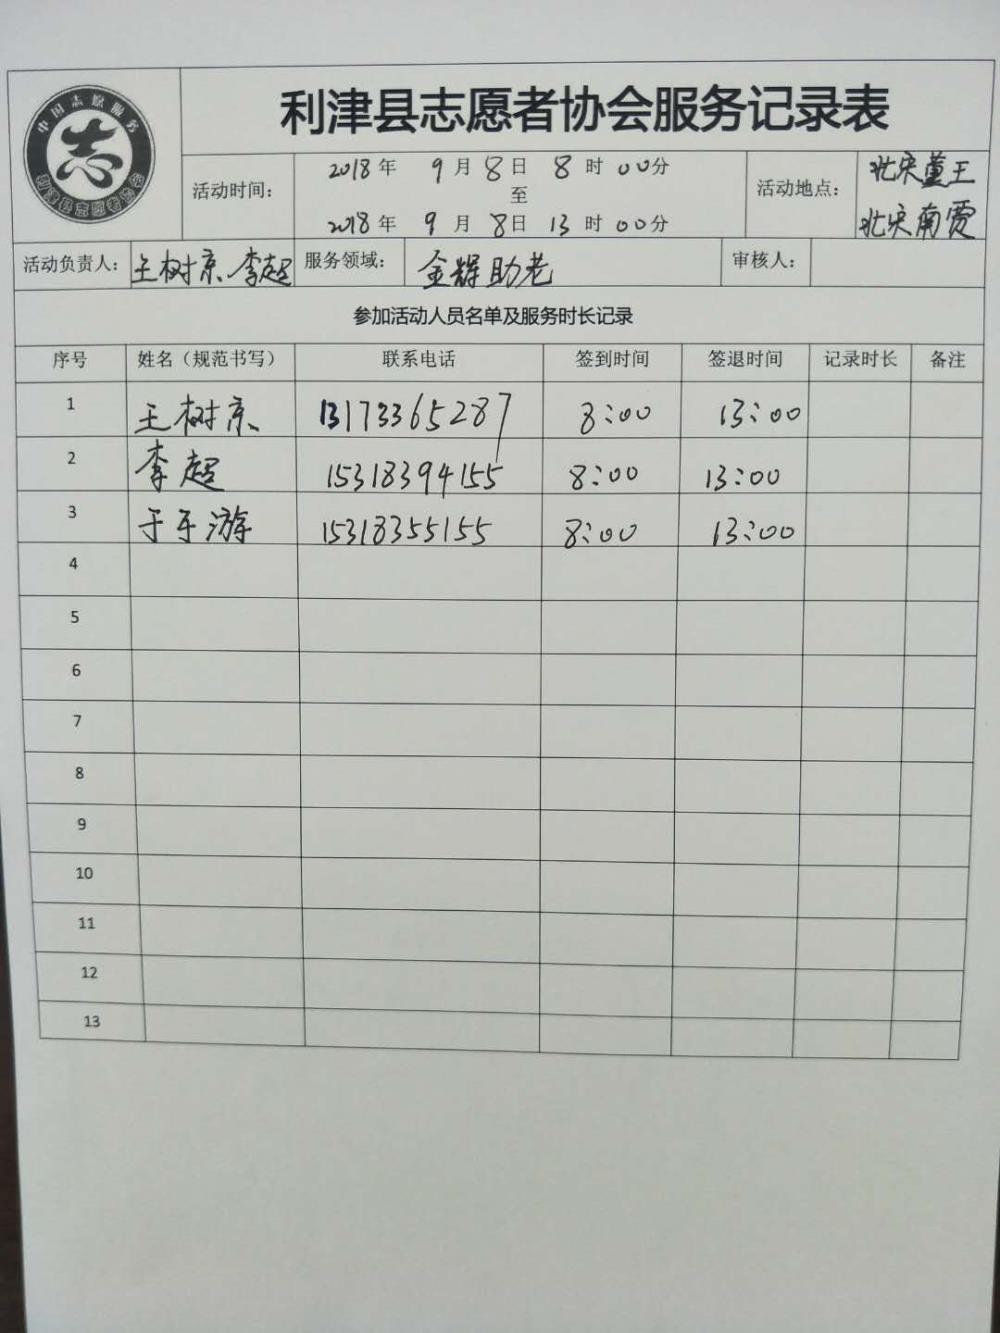 中国志愿服务
志
利津县志愿者协会
利津县志愿者协会服务记录表
活动时间：
2018年 9月8日 8时00分
至
2018年 9月8日 13时00分
活动地点：
北宋董王
北宋南贾
活动负责人： 王树京 李超 服务领域： 金辉助老 审核人：
参加活动人员名单及服务时长记录
序号 姓名（规范书写） 联系电话 签到时间 签退时间 记录时长 备注
1 王树京 13173365287 8:00 13:00
2 李超 15318394155 8:00 13:00
3 于子游 15318355155 8:00 13:00
4
5
6
7
8
9
10
11
12
13